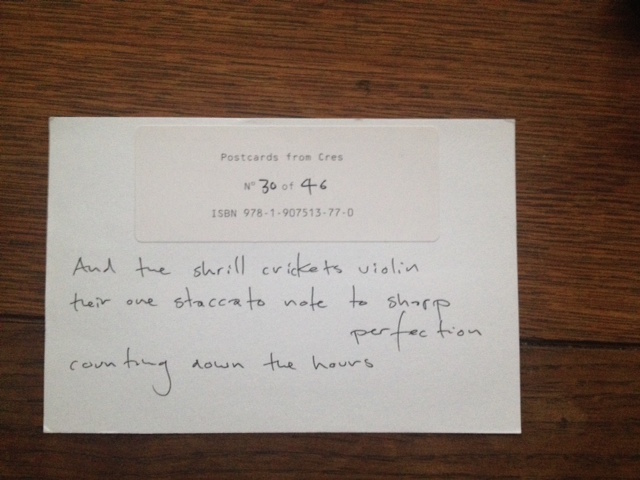 Postcards from Cres
Nº 30 of 46
ISBN 978-1-907513-77-0
And the shrill crickets violin
their one staccato note to sharp
perfection
counting down the hours